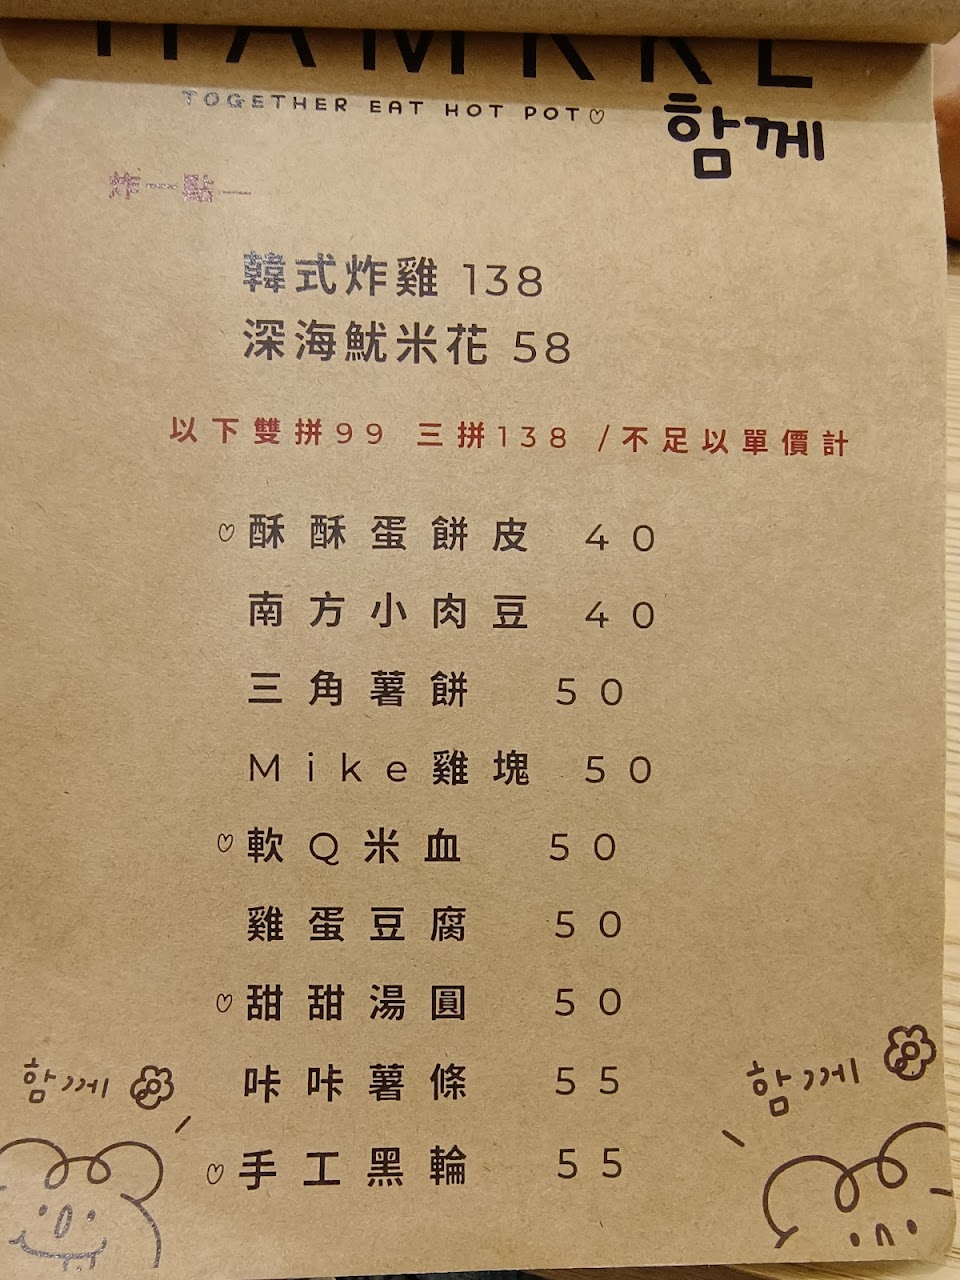 HAMKKE
TOGETHER EAT HOT POT♡
함께
炸一點—
韓式炸雞 138
深海魷米花 58
以下雙拼99 三拼138 /不足以單價計
♡酥酥蛋餅皮 40
南方小肉豆 40
三角薯餅 50
Mike雞塊 50
♡軟Q米血 50
雞蛋豆腐 50
♡甜甜湯圓 50
咔咔薯條 55
♡手工黑輪 55
함께
함께